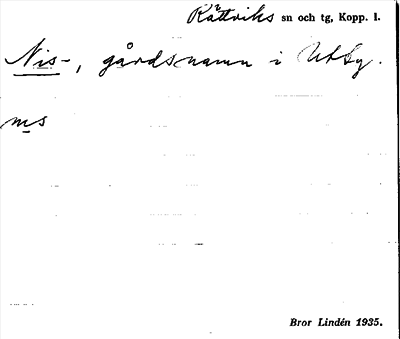 Rättviks sn och tg, Kopp. l.
Nis-, gårdsnamn i Utby.
ms
Bror Lindén 1935.